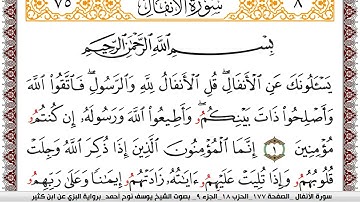 ٧٥ سورة الأنفال ٨
بِسْمِ اللَّهِ الرَّحْمَٰنِ الرَّحِيمِ
يَسْـَٔلُونَكَ عَنِ الْأَنفَالِ ۖ قُلِ الْأَنفَالُ لِلَّهِ وَالرَّسُولِ ۖ فَاتَّقُوا اللَّهَ
وَأَصْلِحُوا ذَاتَ بَيْنِكُمُۥ ۖ وَأَطِيعُوا اللَّهَ وَرَسُولَهُۥ إِن كُنتُمُۥ
مُؤْمِنِينَ ١ إِنَّمَا الْمُؤْمِنُونَ الَّذِينَ إِذَا ذُكِرَ اللَّهُ وَجِلَتْ
قُلُوبُهُمُۥ وَإِذَا تُلِيَتْ عَلَيْهِمُۥ ءَايَٰتُهُۥ زَادَتْهُمُۥ إِيمَٰنًا وَعَلَىٰ رَبِّهِمُۥ
سورة الأنفال _الصفحة ١٧٧_ الحزب ١٨_ الجزء ٩_ بصوت الشيخ يوسف نوح أحمد_ برواية البزي عن ابن كثير